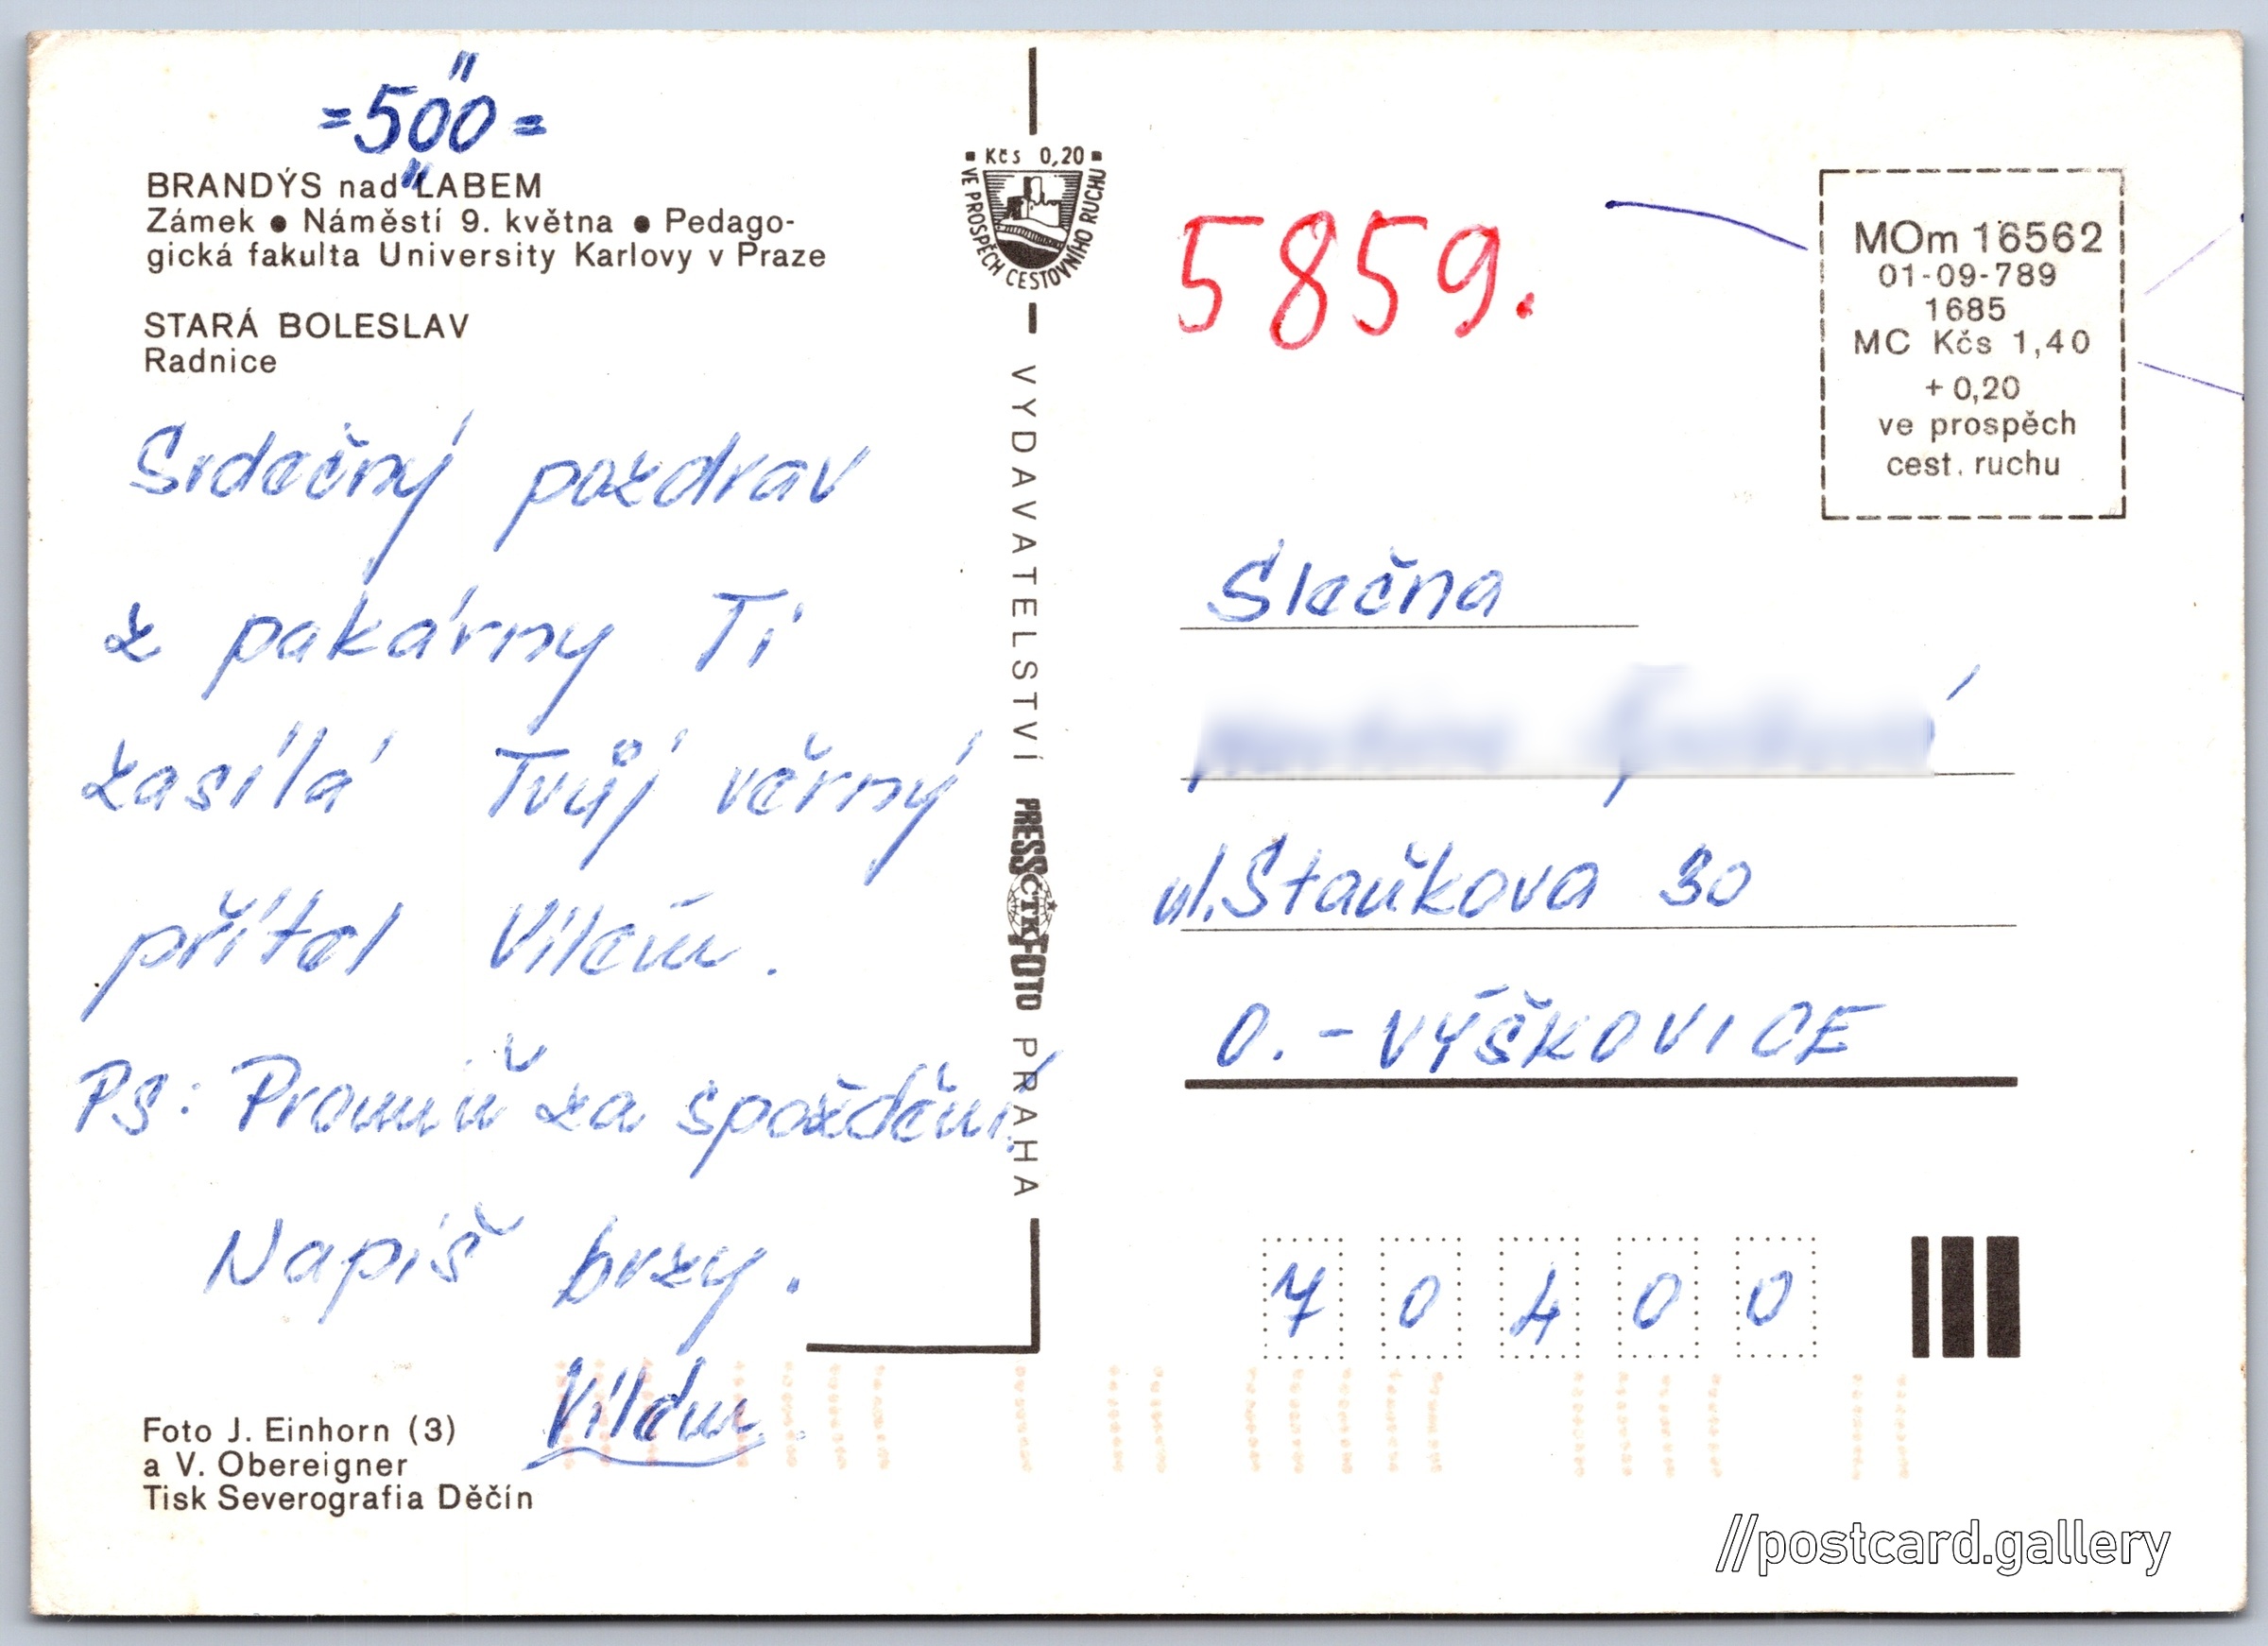 =500=
BRANDÝS nad LABEM
Zámek ● Náměstí 9. května ● Pedago-
gická fakulta University Karlovy v Praze
STARÁ BOLESLAV
Radnice
Srdečný pozdrav
z pakárny Ti
zasílá Tvůj věrný
přítel Vilém.
PS: Promiň za spoždění.
Napiš brzy.
Vilém.
Foto J. Einhorn (3)
a V. Obereigner
Tisk Severografia Děčín
Kčs 0,20
VE PROSPĚCH CESTOVNÍHO RUCHU
VYDAVATELSTVÍ PRESSFOTO PRAHA
ČTK
5859.
MOm 16562
01-09-789
1685
MC Kčs 1,40
+ 0,20
ve prospěch
cest. ruchu
Slečna
ul. Staňkova 30
O. - VÝŠKOVICE
70400
//postcard.gallery